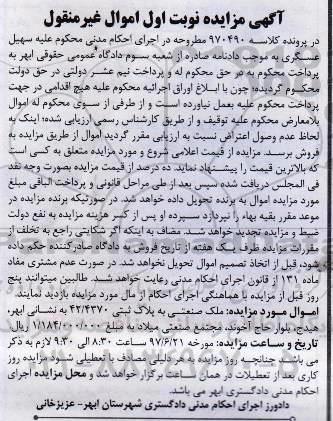 آگهی مزایده نوبت اول اموال غیرمنقول
در پرونده کلاسه ۹۷۰۴۹۰ مطروحه در اجرای احکام مدنی محکوم علیه سهیل
عسگری به موجب دادنامه صادره از شعبه سوم دادگاه عمومی حقوقی ابهر به
پرداخت محکوم به در حق محکوم له و پرداخت نیم عشر دولتی در حق دولت
محکوم گردیده؛ چون با ابلاغ اوراق اجرائیه محکوم علیه هیچ اقدامی در جهت
پرداخت محکوم علیه بعمل نیاورده است و از طرفی از سوی محکوم له اموال
بلامعارض محکوم علیه توقیف و از طریق کارشناس رسمی ارزیابی شده؛ اینک به
لحاظ عدم وصول اعتراض نسبت به ارزیابی مقرر گردید اموال از طریق مزایده به
فروش برسد. مزایده از قیمت اعلامی شروع و مورد مزایده متعلق به کسی است
که بالاترین قیمت را پیشنهاد نماید. ده درصد از قیمت مزایده بصورت وجه نقد
فی المجلس دریافت شده سپس بعد از طی مراحل قانونی و پرداخت الباقی مبلغ
مورد مزایده اموال به برنده تحویل داده خواهد شد. در صورتیکه برنده مزایده در
موعد مقرر بقیه بهاء را نپردازد سپرده او پس از کسر هزینه مزایده به نفع دولت
ضبط و مزایده تجدید خواهد شد. مضاف به اینکه اگر شکایتی راجع به تخلف از
مقررات مزایده ظرف یک هفته از تاریخ فروش به دادگاه صادرکننده حکم داده
شود، قبل از اتخاذ تصمیم اموال تحویل نخواهد شد. در صورت عدم مشتری مفاد
ماده ۱۳۱ از قانون اجرای احکام مدنی رعایت خواهد شد. طالبین میتوانند پنج
روز قبل از مزایده با هماهنگی اجرای احکام از مال مورد مزایده بازدید نمایند.
اموال مورد مزایده: ملک صنعتی به پلاک ثبتی ۴۲/۴۳۷۰ به نشانی ابهر،
هیدج، بلوار حاج آخوند، مجتمع صنعتی میلاد به مبلغ ۱/۱۸۴/۰۰۰/۰۰۰ ریال
تاریخ و ساعت مزایده: مورخه ۹۷/۶/۲۱ ساعت ۸:۳۰ الی ۹:۳۰ لازم به ذکر
می باشد، چنانچه روز مزایده به هر دلیلی مصادف با تعطیلی شود مزایده روز
کاری بعد از تعطیلات در همان ساعت برگزار خواهد شد و محل مزایده اجرای
احکام مدنی دادگستری ابهر می باشد.
دادورز اجرای احکام مدنی دادگستری شهرستان ابهر- عزیزخانی